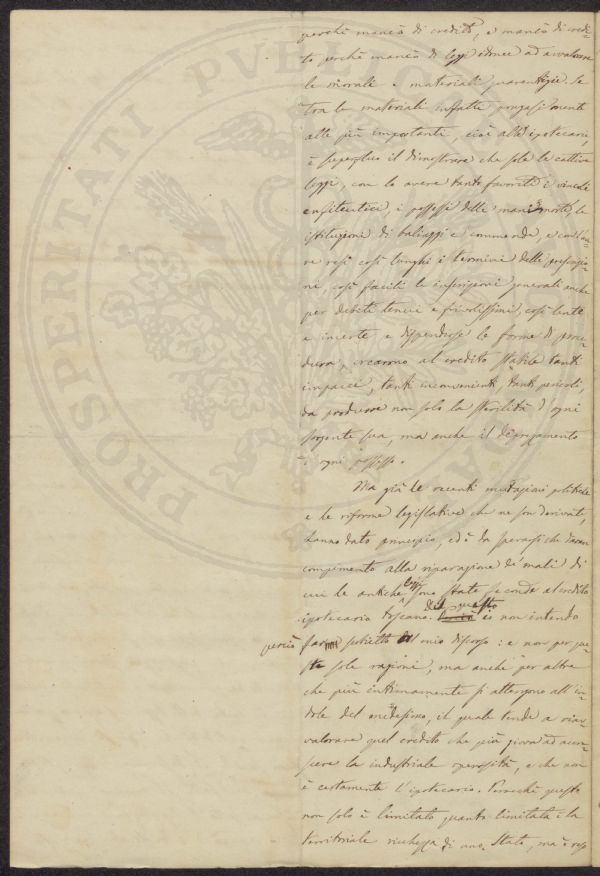 perchè mancò di credito, e mancò di credi-
to perchè mancò di leggi idonee ad avvalorare
le morali e materiali guarentigie. Se
tra le materiali infatti pongasi mente
alle più importanti, cioè alle ipotecarie,
è superfluo il dimostrare che sole le cattive
leggi, con lo avere tanto favorito i vincoli
enfiteutici, i possessi delle mani morte, le
istituzioni di baliaggi e commende, e con l'ave-
re resi così lunghi i termini delle prescrizio-
ni, così facili le inscrizioni generali anche
per debiti tenui e frivolissimi, così lente
e incerte, e dispendiose le forme di proce-
dura, crearono al credito stabile tanti
impacci, tanti inconvenienti, tanti pericoli,
da produrre non solo la sterilità d'ogni
sorgente sua, ma anche il disprezzamento
d'ogni possesso.
Ma già le recenti mutazioni politiche
e le riforme legislative che ne son derivate,
hanno dato principio, ed è da sperarsi che daran
compimento alla riparazione de' mali di
cui le antiche leggi sono state feconde al credito
ipotecario toscano. Di questo io non intendo
perciò far subietto al mio discorso: e non per que-
ste sole ragioni, ma anche per altre
che più intimamente si attengono all'in-
dole del medesimo, il quale tende a riav-
valorare quel credito che più giova ad accre-
scere la industriale operosità, e che non
è certamente l'ipotecario. Perocchè questo
non solo è limitato quanto limitata è la
territoriale ricchezza di uno Stato, ma è resp
PROSPERITATI PVBLICAE